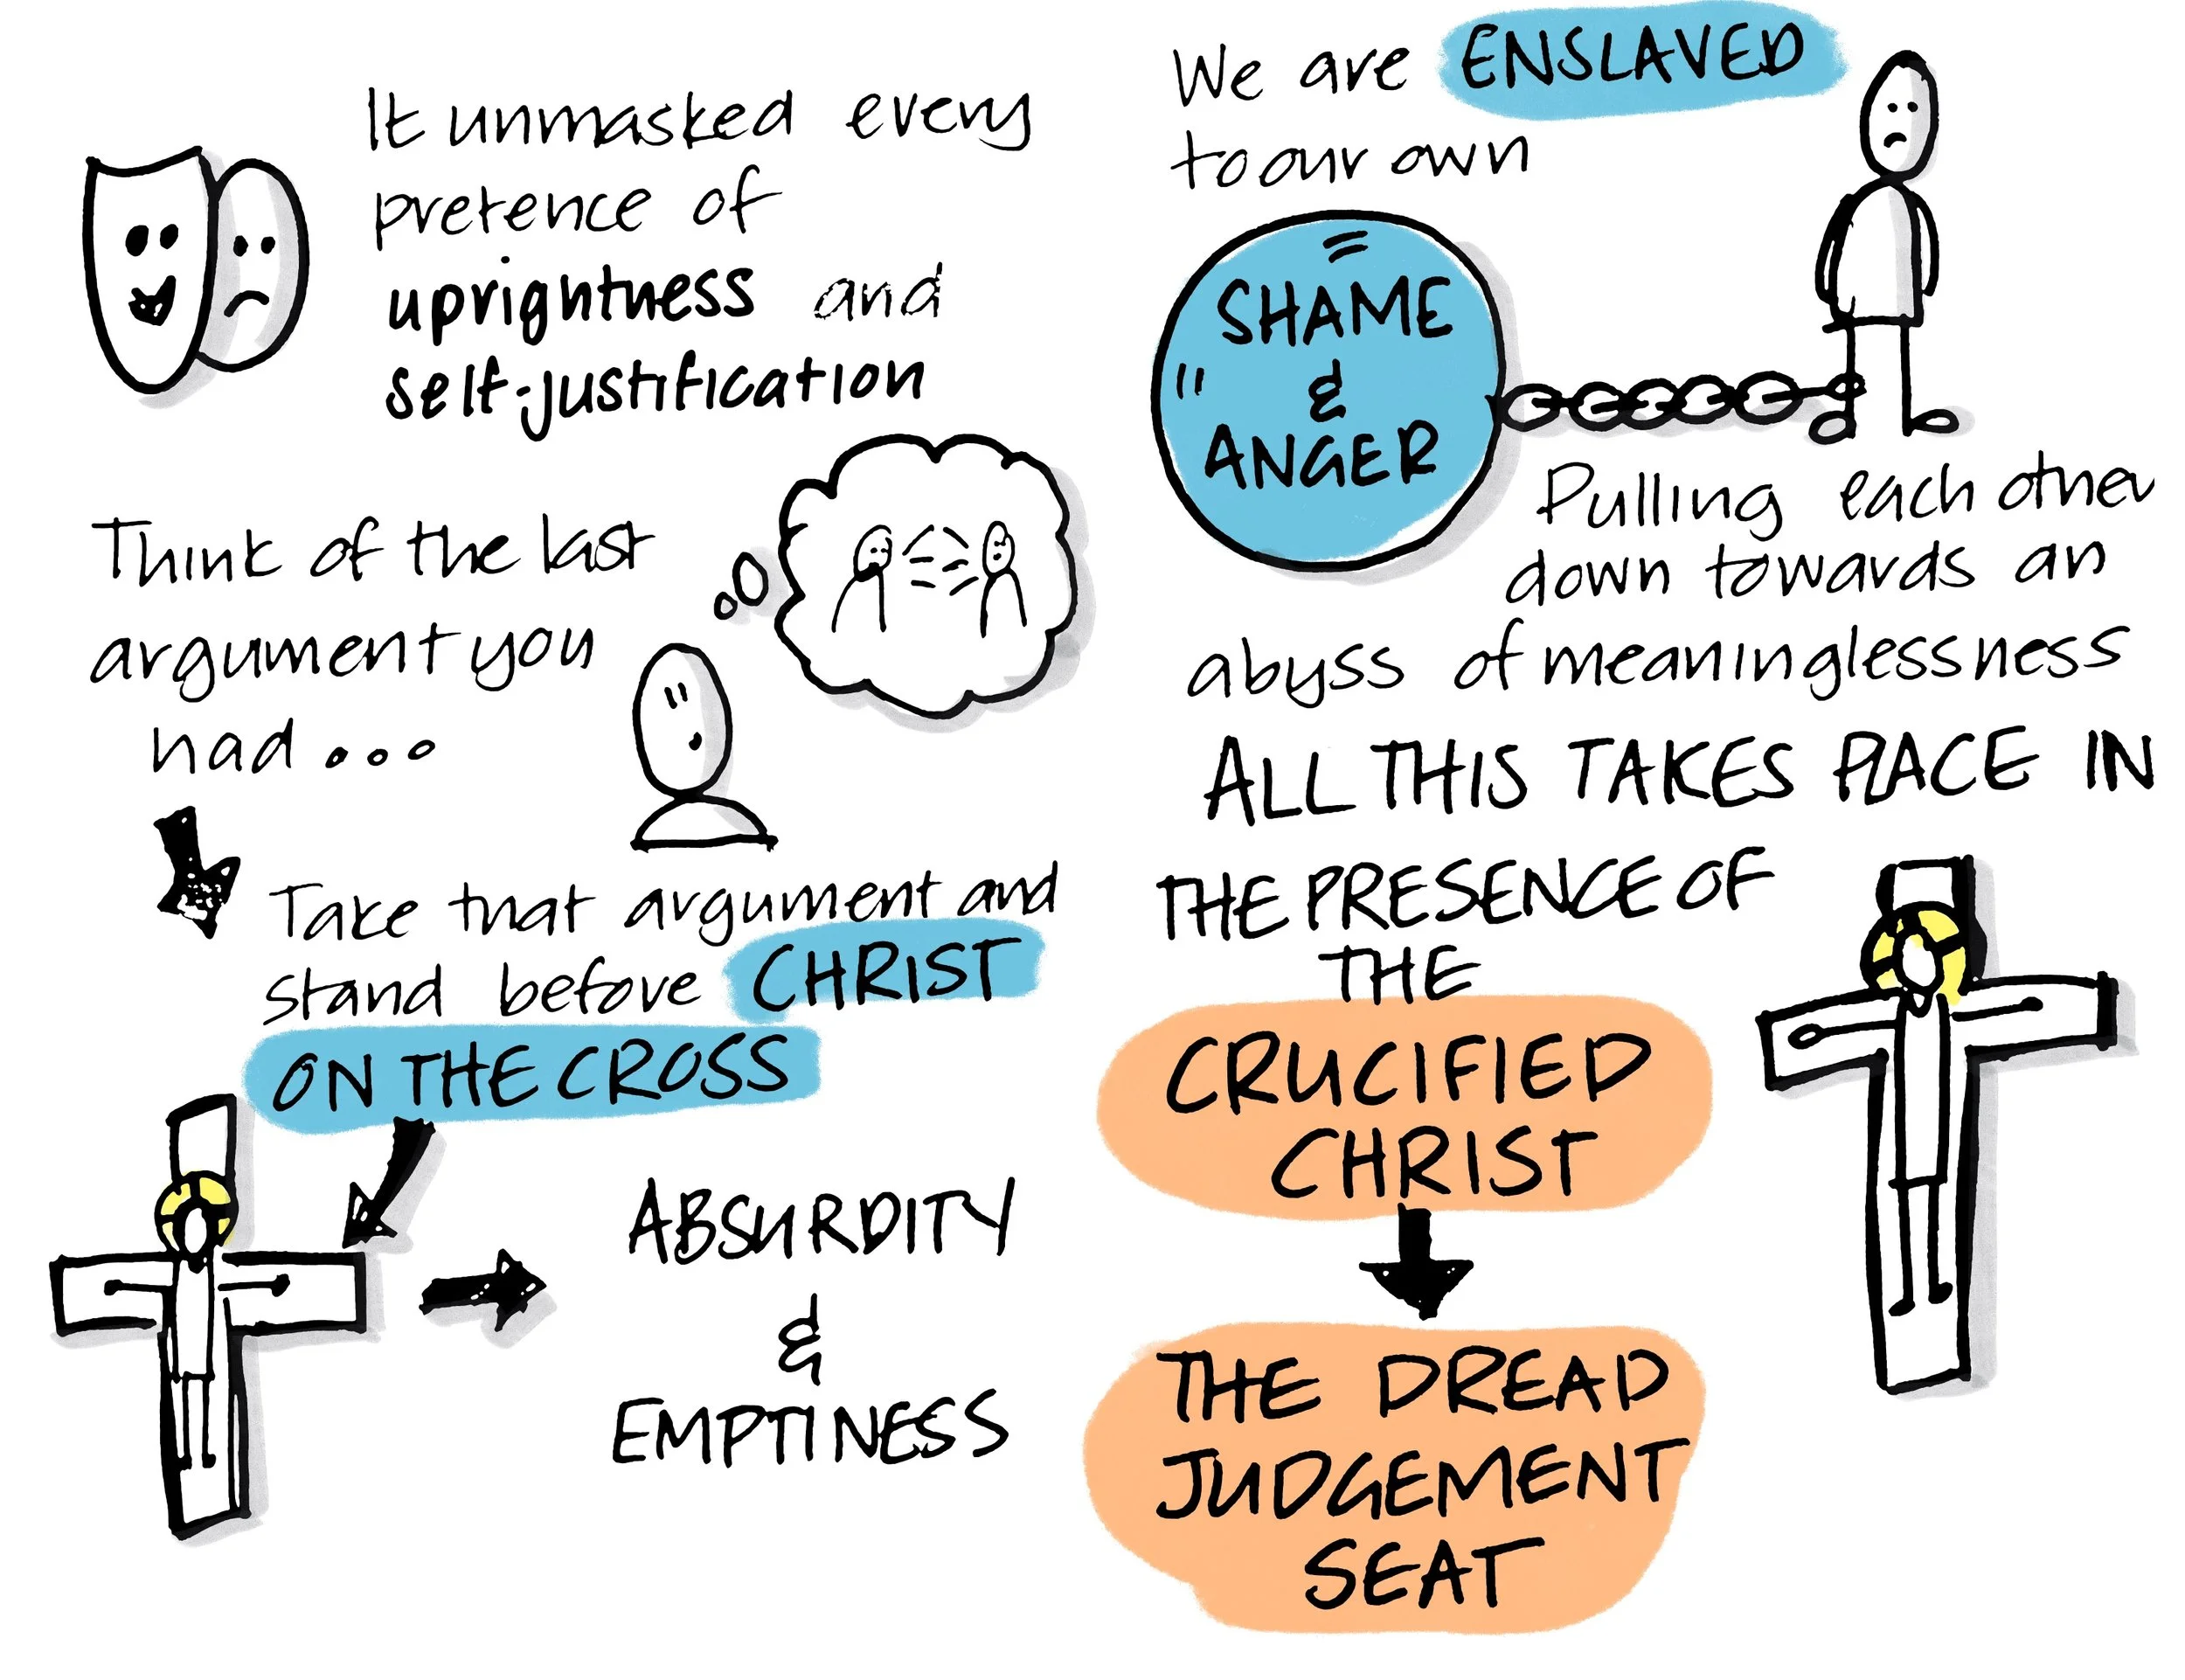 It unmasked every
pretence of
uprightness and
self-justification
Think of the last
argument you
had...
Take that argument and
stand before CHRIST
ON THE CROSS
ABSURDITY
&
EMPTINESS
We are ENSLAVED
to our own
SHAME
&
ANGER
Pulling each other
down towards an
abyss of meaninglessness
ALL THIS TAKES PLACE IN
THE PRESENCE OF
THE
CRUCIFIED
CHRIST
THE DREAD
JUDGEMENT
SEAT